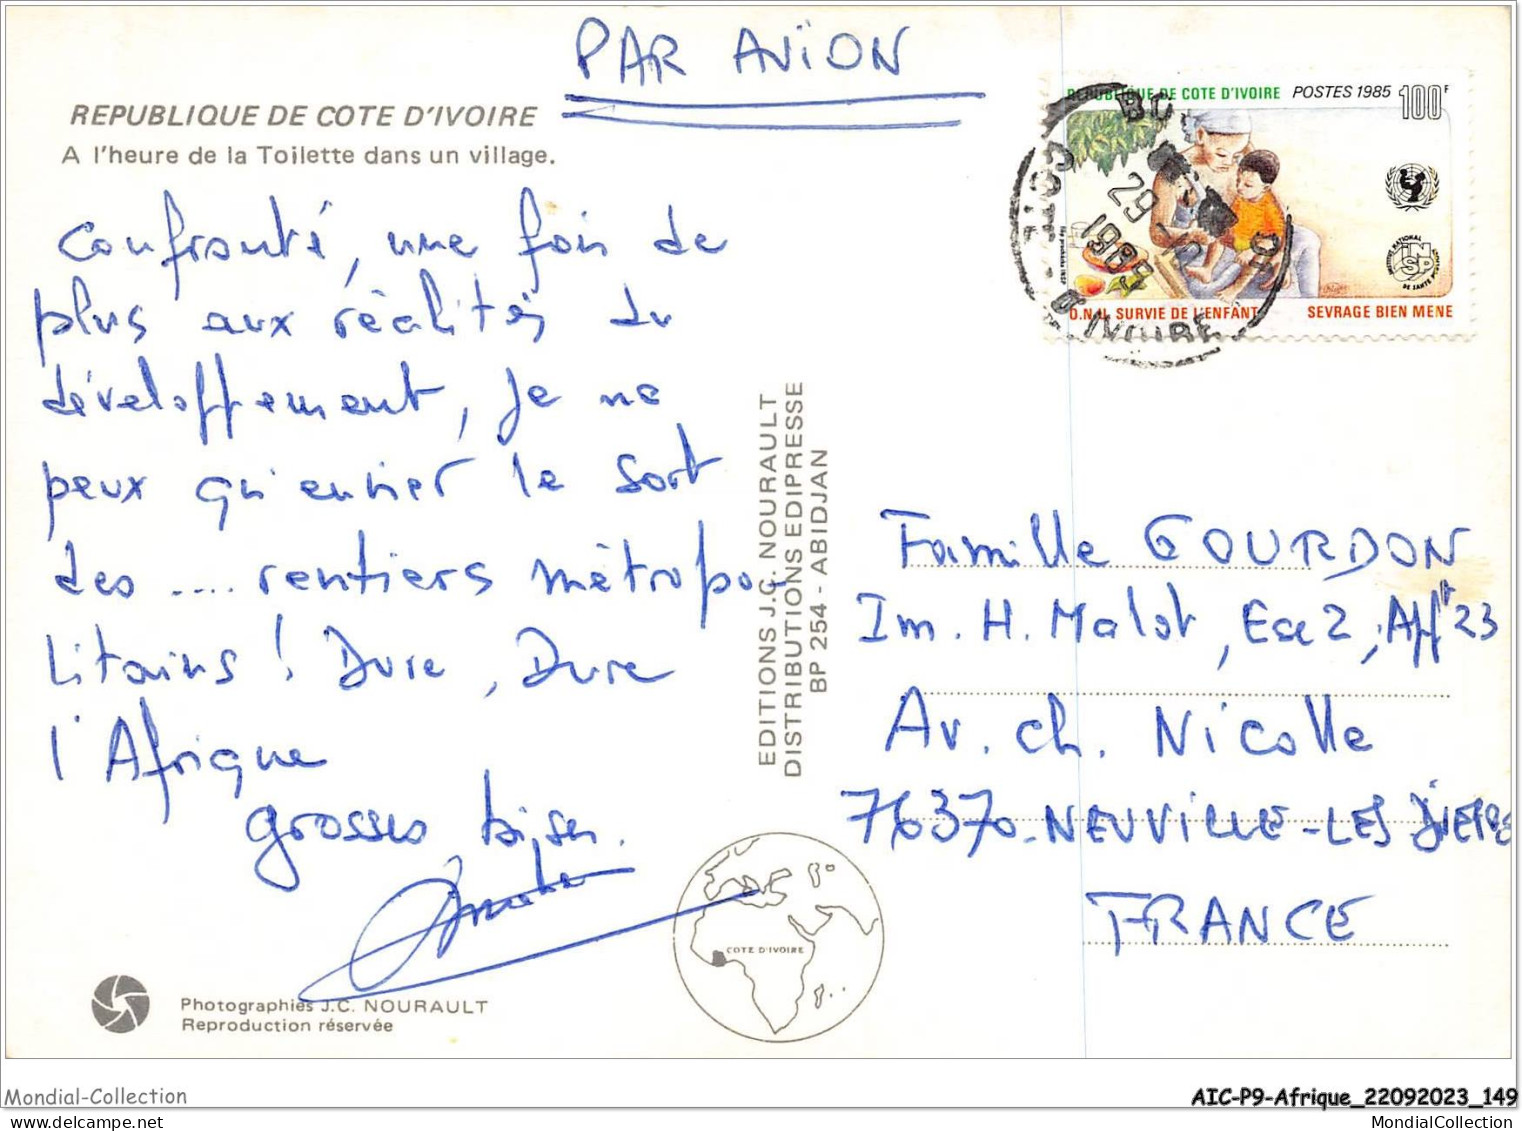 PAR AVION
REPUBLIQUE DE COTE D'IVOIRE
A l'heure de la Toilette dans un village.
Confronté, une fois de
plus aux réalités du
développement, je ne
peux qu'envier le sort
des .... rentiers métropo-
litains ! Dure, Dure
l'Afrique
grosses bises.
Photographies J.C. NOURAULT
Reproduction réservée
EDITIONS J.C. NOURAULT
DISTRIBUTIONS EDIPRESSE
BP 254 - ABIDJAN
COTE D'IVOIRE
REPUBLIQUE DE COTE D'IVOIRE POSTES 1985 100F
INSTITUT NATIONAL
INSP
DE SANTE PUBLIQUE
O.N.U. SURVIE DE L'ENFANT SEVRAGE BIEN MENE
29
1985
COTE D'IVOIRE
Famille GOURDON
Im. H. Malot, Esc 2, Appt 23
Av. ch. Nicolle
76370 - NEUVILLE-LES DIEPPE
FRANCE
Mondial-Collection
AIC-P9-Afrique_22092023_149
MondialCollection